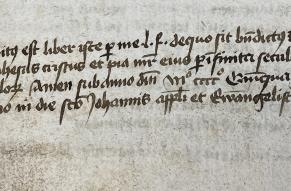 est liber iste p me l. f. de quo sit bn̄dictus
cristus et pia mr̄ eius p īfinita secula
Amen sub anno dn̄i Mº ccccº Quinqua
in die scī Johannis appl̄i et Ewangelist